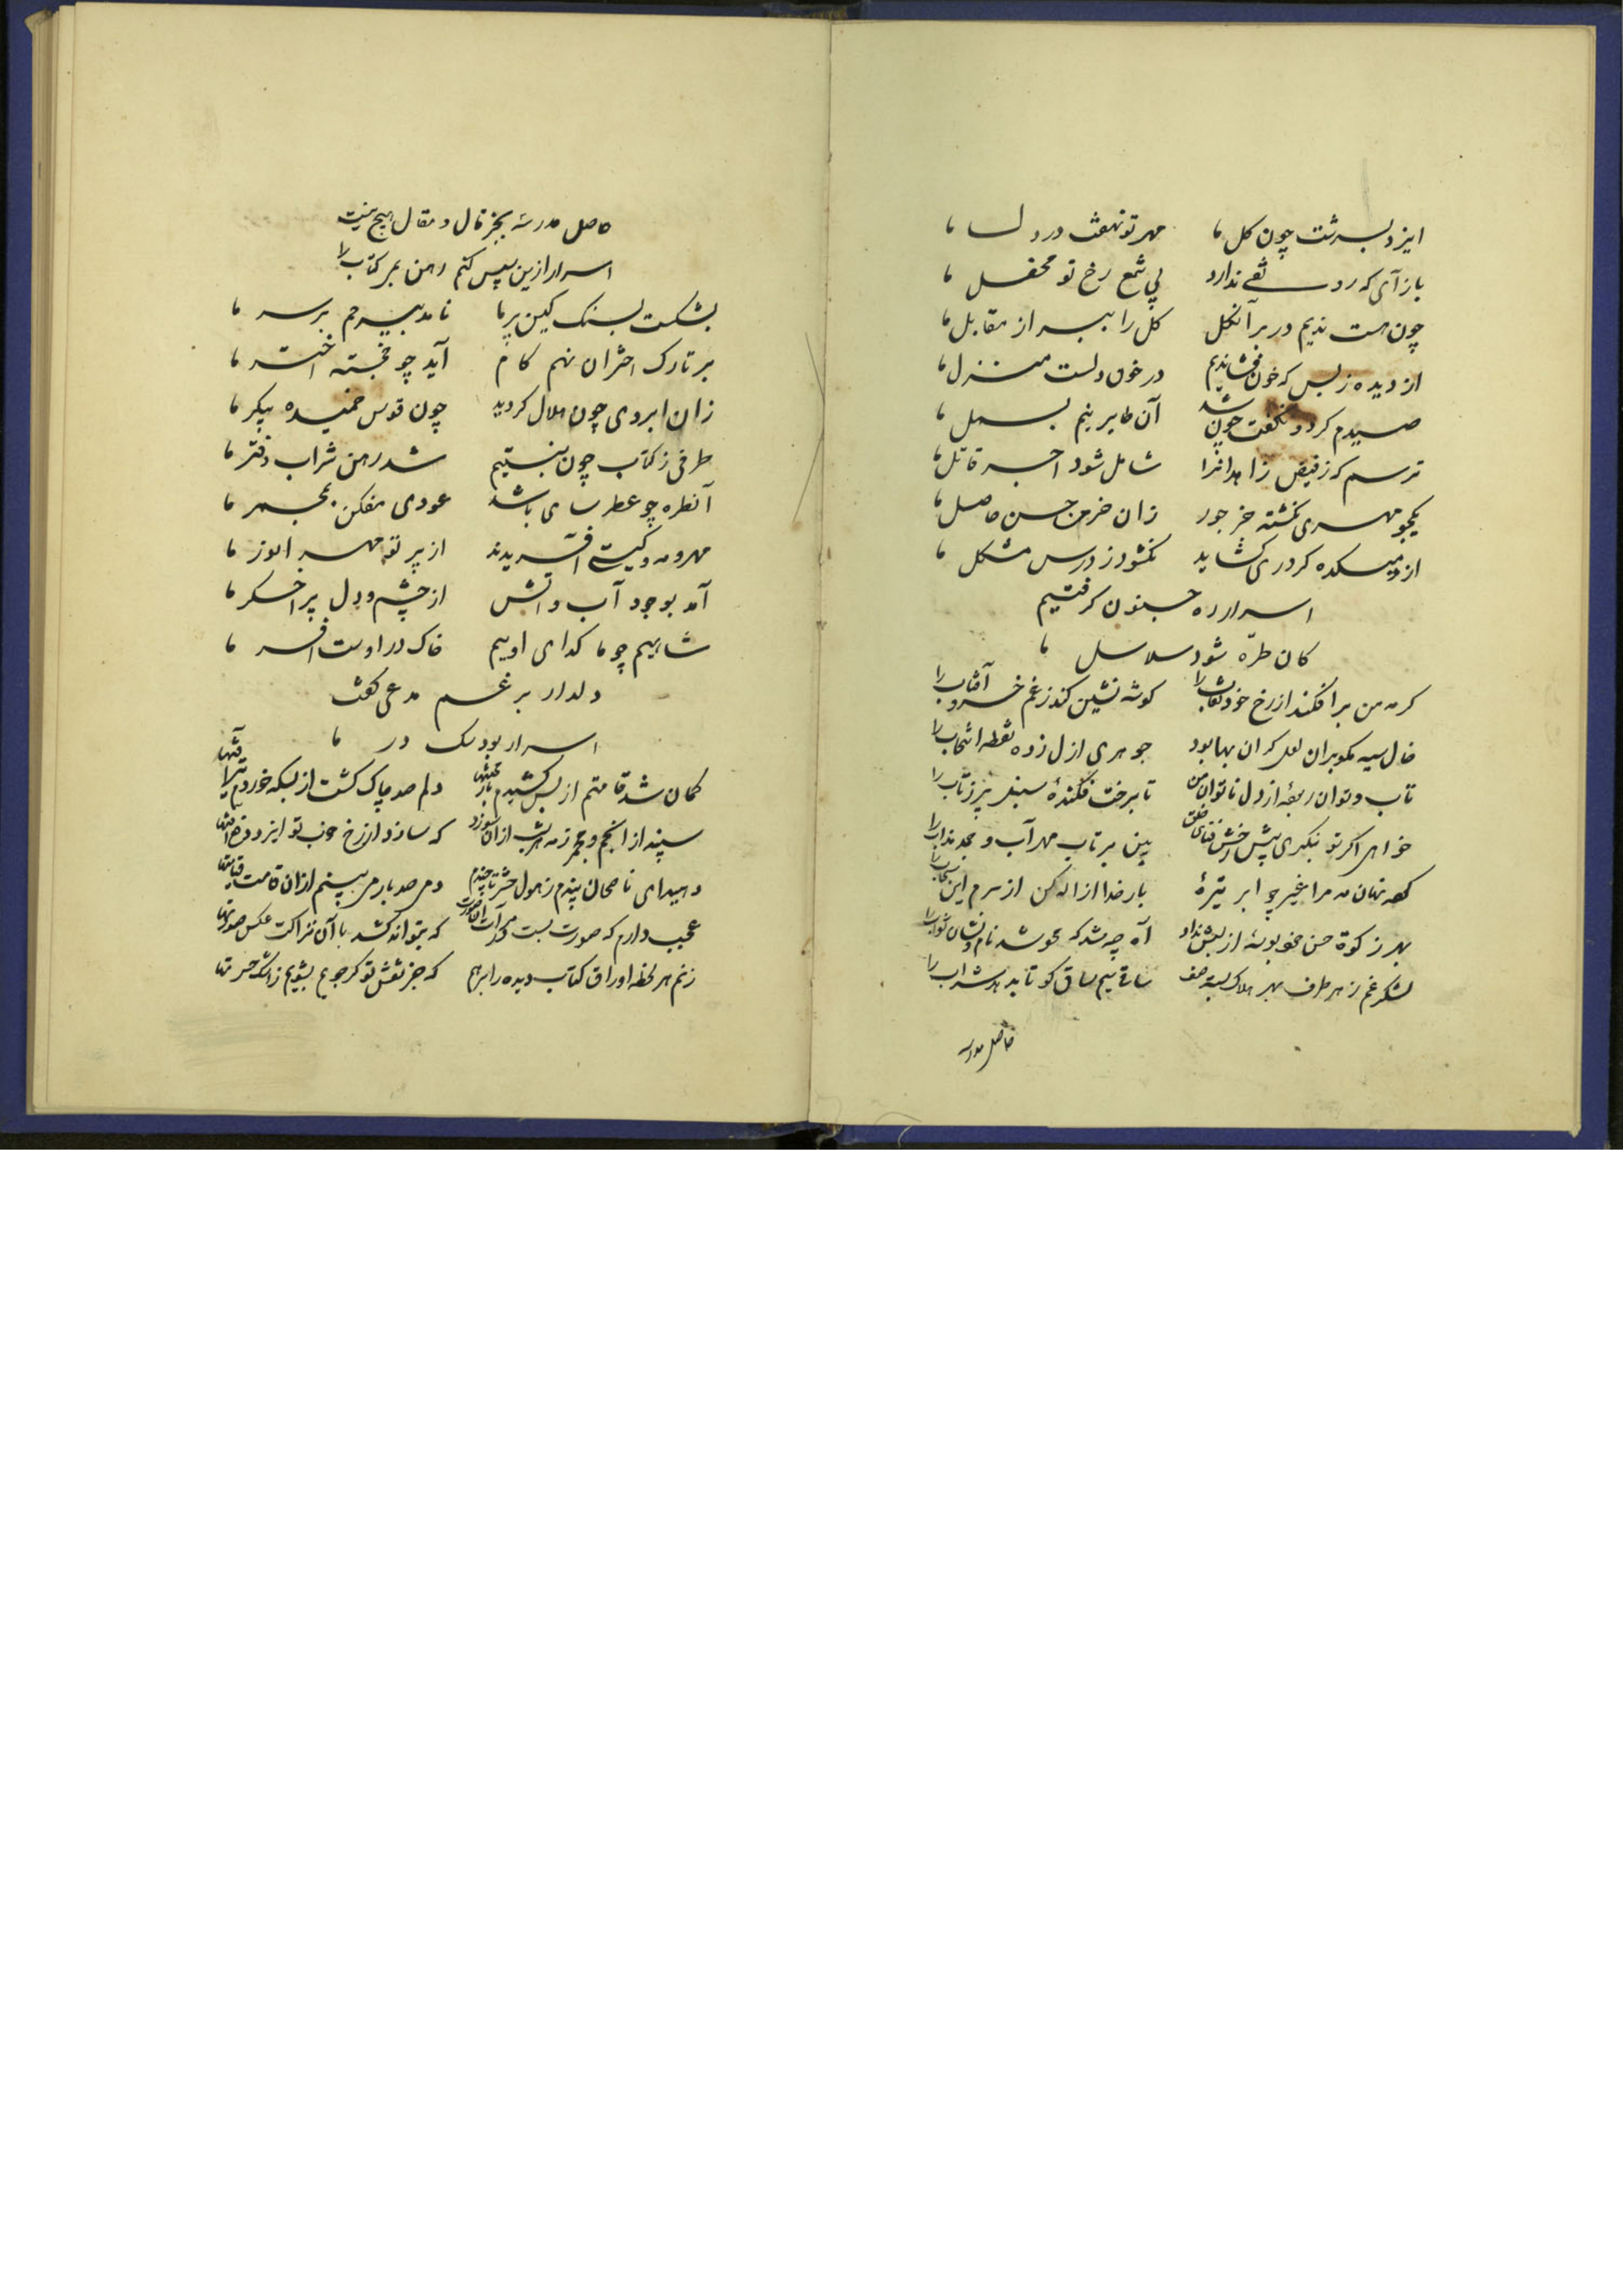 ایزد بسرشت چون کل ما مهر تو نهفت در دل ما
باز آی که رونقی ندارد بی شمع رخ تو محفل ما
چون هست ندیم در بر آنکل کل را ببر از مقابل ما
از دیده ز بس که خون فشاندیم در خون دلست منزل ما
صیدم کرد و نکفت چون شد آن طایر نیم بسمل ما
ترسم که ز فیض زاهدانرا شامل شود اجر قاتل ما
یکجو مهری نکشته جز جور زان خرمن حسن حاصل ما
از میکده کر دری کشاید نکشود ز درس مشکل ما
اسرار ره جنون کرفتیم
کان طرّه شود سلاسل ما
کر مه من برافکند از رخ خود نقاب را کوشه نشین کند ز غم خسرو آفتاب را
خال سیه بر ان لعل کران بها بود جوهری ازل زده نقطه انتخاب را
تاب و توان ربوده از دل ناتوان من تا برخت فکندهٔ سنبل پر ز تاب را
خواهی اکر تو بنکری پیش رخش فنای خلق بین بر تاب مهر آب و
مه مرا غیر چو ابر تیرهٔ بار خدا ازاله کن از سرم این سحاب را
بهر زکوة حسن خود بوسهٔ از لبش نداد آه چه شد که محو شد نام و نشان ثواب را
لشکر غم ز هر طرف بهر هلاک بسته صف ساقی سیم ساق کو تا بدهد شراب را
حاصل مدرسه
حاصل مدرسه بجز قال و مقال هیچ نیست
اسرار ازین سپس کنم رهن می کتاب را
بشکست بسنک کین پر ما نامد بیرحم بر سر ما
بر تارک اختران نهم کام آید چو خجسته اختر ما
زان ابروی چون هلال کردید چون قوس خمیده پیکر ما
طرفی ز کتاب چون نبستیم شد رهن شراب دفتر ما
آنطره چو عطر سای باشد عودی مفکن بمجمر ما
مهر و مه و کیتی آفریدند از پرتو مهر انور ما
آمد بوجود آب و اتش از چشم و دل پر اخکر ما
شاهیم چو ما کدای اوییم خاک در اوست افسر ما
دلدار برغم مدعی کفت
اسرار بود سک در ما
کمان شد قامتم از بس کشیدم بار محنتها دلم صد چاک کشت از بسکه خوردم تیر آفتها
سپند از انجم و مجمر ز مه هر شب از ان سوزد که سازد از رخ خوب تو ایزد دفع آفتها
دهید ای ناصحان پندم ز هول حشر تا چندم دمی صد بار می بینم از ان قامت قیامتها
عجب دارم که صورت بست که بتواند کشد با آن نزاکت عکس صورتها
زنم هر لحظه اوراق کتاب دیده را برهم که جز نقش تو کر جویم بشویم ز اشک حسرتها